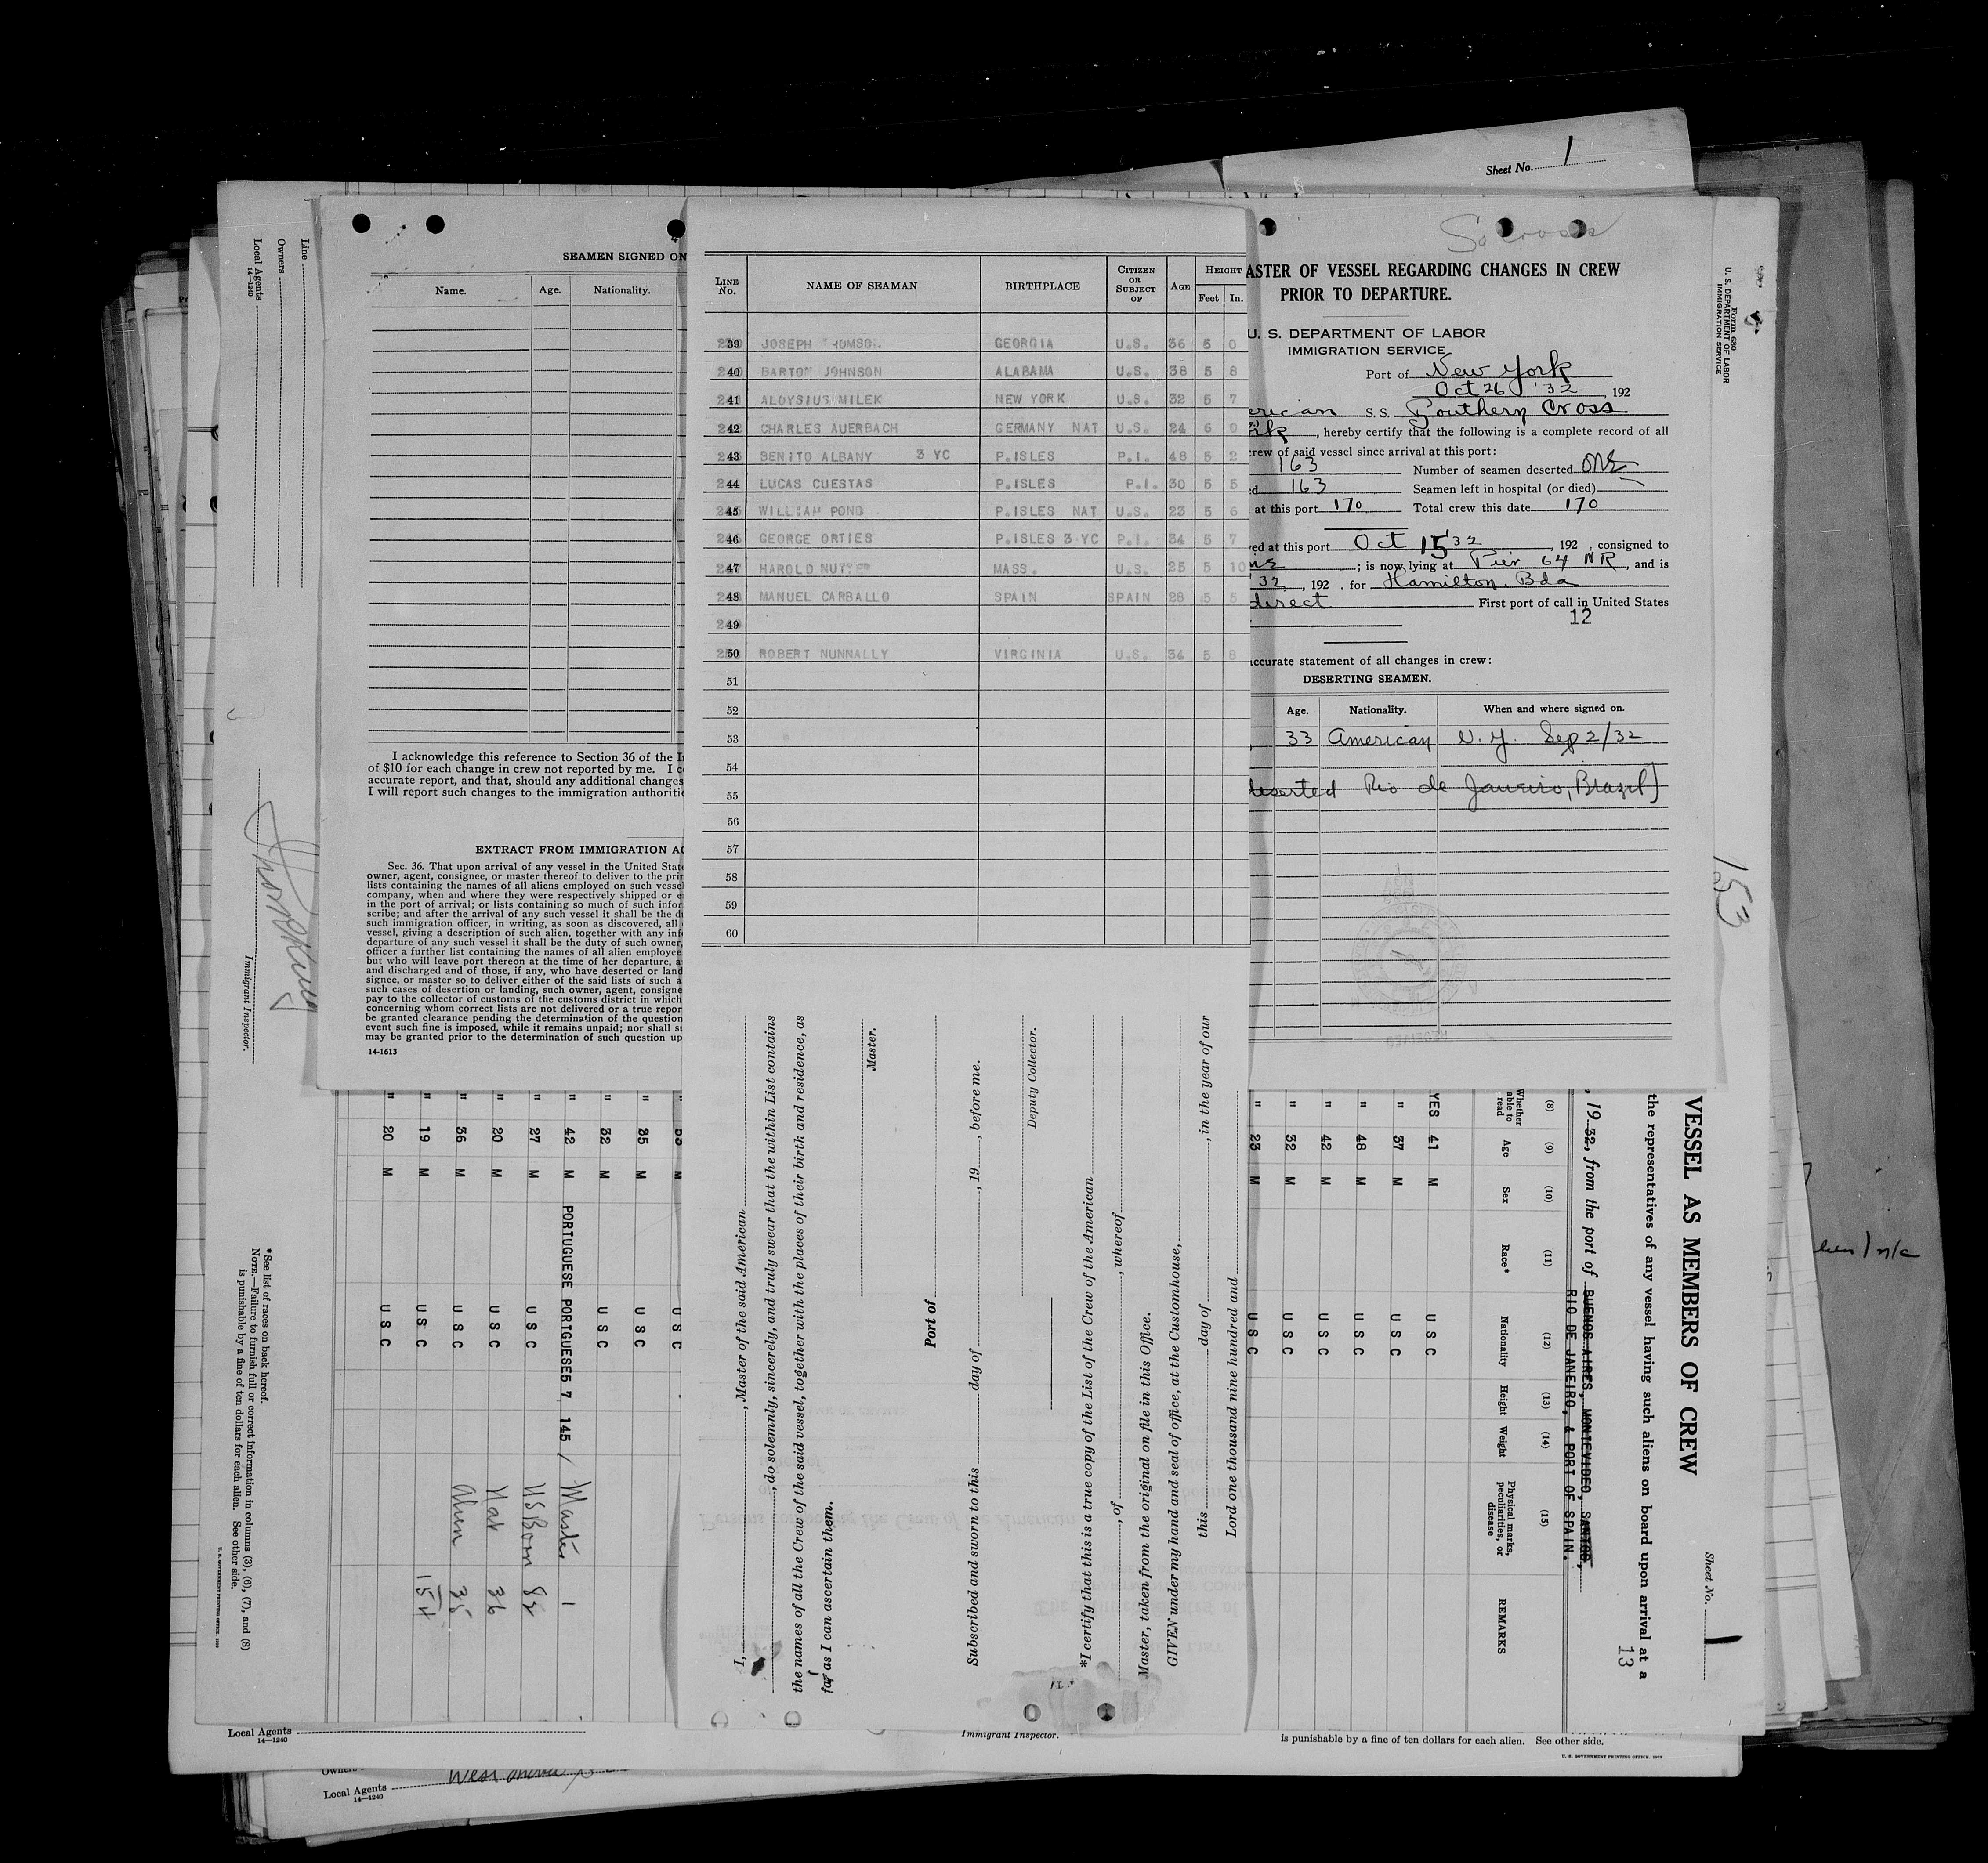 Sheet No. 1
Line
Owners
Local Agents
14—1240
Immigrant Inspector.
*See list of races on back hereof.
NOTE.—Failure to furnish full or correct information in columns (3), (6), (7), and (8)
is punishable by a fine of ten dollars for each alien. See other side.
U. S. GOVERNMENT PRINTING OFFICE
4
SEAMEN SIGNED ON
Name. Age. Nationality.
I acknowledge this reference to Section 36 of the
of $10 for each change in crew not reported by me. I
accurate report, and that, should any additional changes
I will report such changes to the immigration authoritie
EXTRACT FROM IMMIGRATION AC
Sec. 36. That upon arrival of any vessel in the United Stat
owner, agent, consignee, or master thereof to deliver to the prin
lists containing the names of all aliens employed on such vesse
company, when and where they were respectively shipped or e
in the port of arrival; or lists containing so much of such infor
scribe; and after the arrival of any such vessel it shall be the d
such immigration officer, in writing, as soon as discovered, all
vessel, giving a description of such alien, together with any inf
departure of any such vessel it shall be the duty of such owner,
officer a further list containing the names of all alien employee
but who will leave port thereon at the time of her departure, a
and discharged and of those, if any, who have deserted or land
signee, or master so to deliver either of the said lists of such a
such cases of desertion or landing, such owner, agent, consigne
pay to the collector of customs of the customs district in which
concerning whom correct lists are not delivered or a true repor
be granted clearance pending the determination of the question
event such fine is imposed, while it remains unpaid; nor shall su
may be granted prior to the determination of such question up
14-1613
LINE No. NAME OF SEAMAN BIRTHPLACE CITIZEN OR SUBJECT OF AGE HEIGHT Feet In.
39 JOSEPH HOMSO GEORGIA U.S. 36 5 0
40 BARTON JOHNSON ALABAMA U.S. 38 5 8
41 ALOYSIUS MILEK NEW YORK U.S. 32 5 7
42 CHARLES AUERBACH GERMANY NAT U.S. 24 6 0
43 BENITO ALBANY 3 YC P.ISLES P.I. 48 5 2
44 LUCAS CUESTAS P.ISLES P.I. 30 5 5
45 WILLIAM POND P.ISLES NAT U.S. 23 5 6
46 GEORGE ORTIES P.ISLES 3 YC P.I. 34 5 7
47 HAROLD NUTTER MASS. U.S. 25 5 10
48 MANUEL CARBALLO SPAIN SPAIN 28 5 5
49
50 ROBERT NUNNALLY VIRGINIA U.S. 34 5 8
51
52
53
54
55
56
57
58
59
60
I, , Master of the said American
, do solemnly, sincerely, and truly swear that the within List contains
the names of all the Crew of the said vessel, together with the places of their birth and residence, as
far as I can ascertain them.
Master.
Port of
Subscribed and sworn to this day of , 19 , before me.
Deputy Collector.
*I certify that this is a true copy of the List of the Crew of the American
, of , whereof
Master, taken from the original on file in this Office.
GIVEN under my hand and seal of office, at the Customhouse,
this day of , in the year of our
Lord one thousand nine hundred and
So Cross
ASTER OF VESSEL REGARDING CHANGES IN CREW
PRIOR TO DEPARTURE.
U. S. DEPARTMENT OF LABOR
IMMIGRATION SERVICE
Port of New York
Oct 26 '32, 192
erican S. S. Southern Cross
rk, hereby certify that the following is a complete record of all
crew of said vessel since arrival at this port:
163 Number of seamen deserted ONE
ed 163 Seamen left in hospital (or died)
at this port 170 Total crew this date 170
ved at this port Oct 15 '32, 192 , consigned to
; is now lying at Pier 64 NR, and is
32, 192 . for Hamilton, Bda
direct First port of call in United States
12
accurate statement of all changes in crew:
DESERTING SEAMEN.
Age. Nationality. When and where signed on.
33 American N. Y. Sep 2/32
deserted Rio de Janeiro, Brazil)
RECEIVED
Form 680
U. S. DEPARTMENT OF LABOR
IMMIGRATION SERVICE
153
VESSEL AS MEMBERS OF CREW
Sheet No. 1
the representatives of any vessel having such aliens on board upon arrival at a
13
, 1932, from the port of BUENOS AIRES, MONTEVIDEO, SANTOS,
RIO DE JANEIRO, & PORT OF SPAIN.
(8) (9) (10) (11) (12) (13) (14) (15)
Whether able to read Age Sex Race* Nationality Height Weight Physical marks, peculiarities, or disease REMARKS
YES 41 M U S C
" 37 M U S C
" 48 M U S C
" 42 M U S C
" 32 M U S C
" 23 M U S C
" 53 M U S C
" 35 M U S C
" 32 M U S C
" 42 M PORTUGUESE PORTGUESE 5 7 145 / Master 1
" 27 M U S C US Born 82
" 20 M U S C Nat 36
" 36 M U S C Alien 35
" 19 M U S C 154
" 20 M U S C
Local Agents
14—1240
Immigrant Inspector.
is punishable by a fine of ten dollars for each alien. See other side.
U. S. GOVERNMENT PRINTING OFFICE
Owners
Local Agents
14—1240